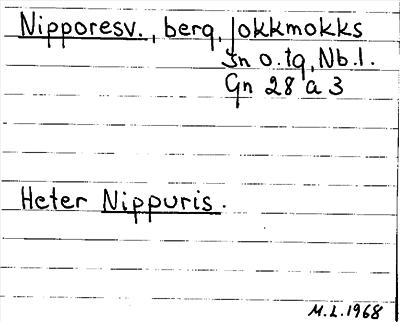 Nipporesv., berg, Jokkmokks
Sn o. tg, Nb. l.
Gn 28 a 3
Heter Nippuris.
M.L.1968